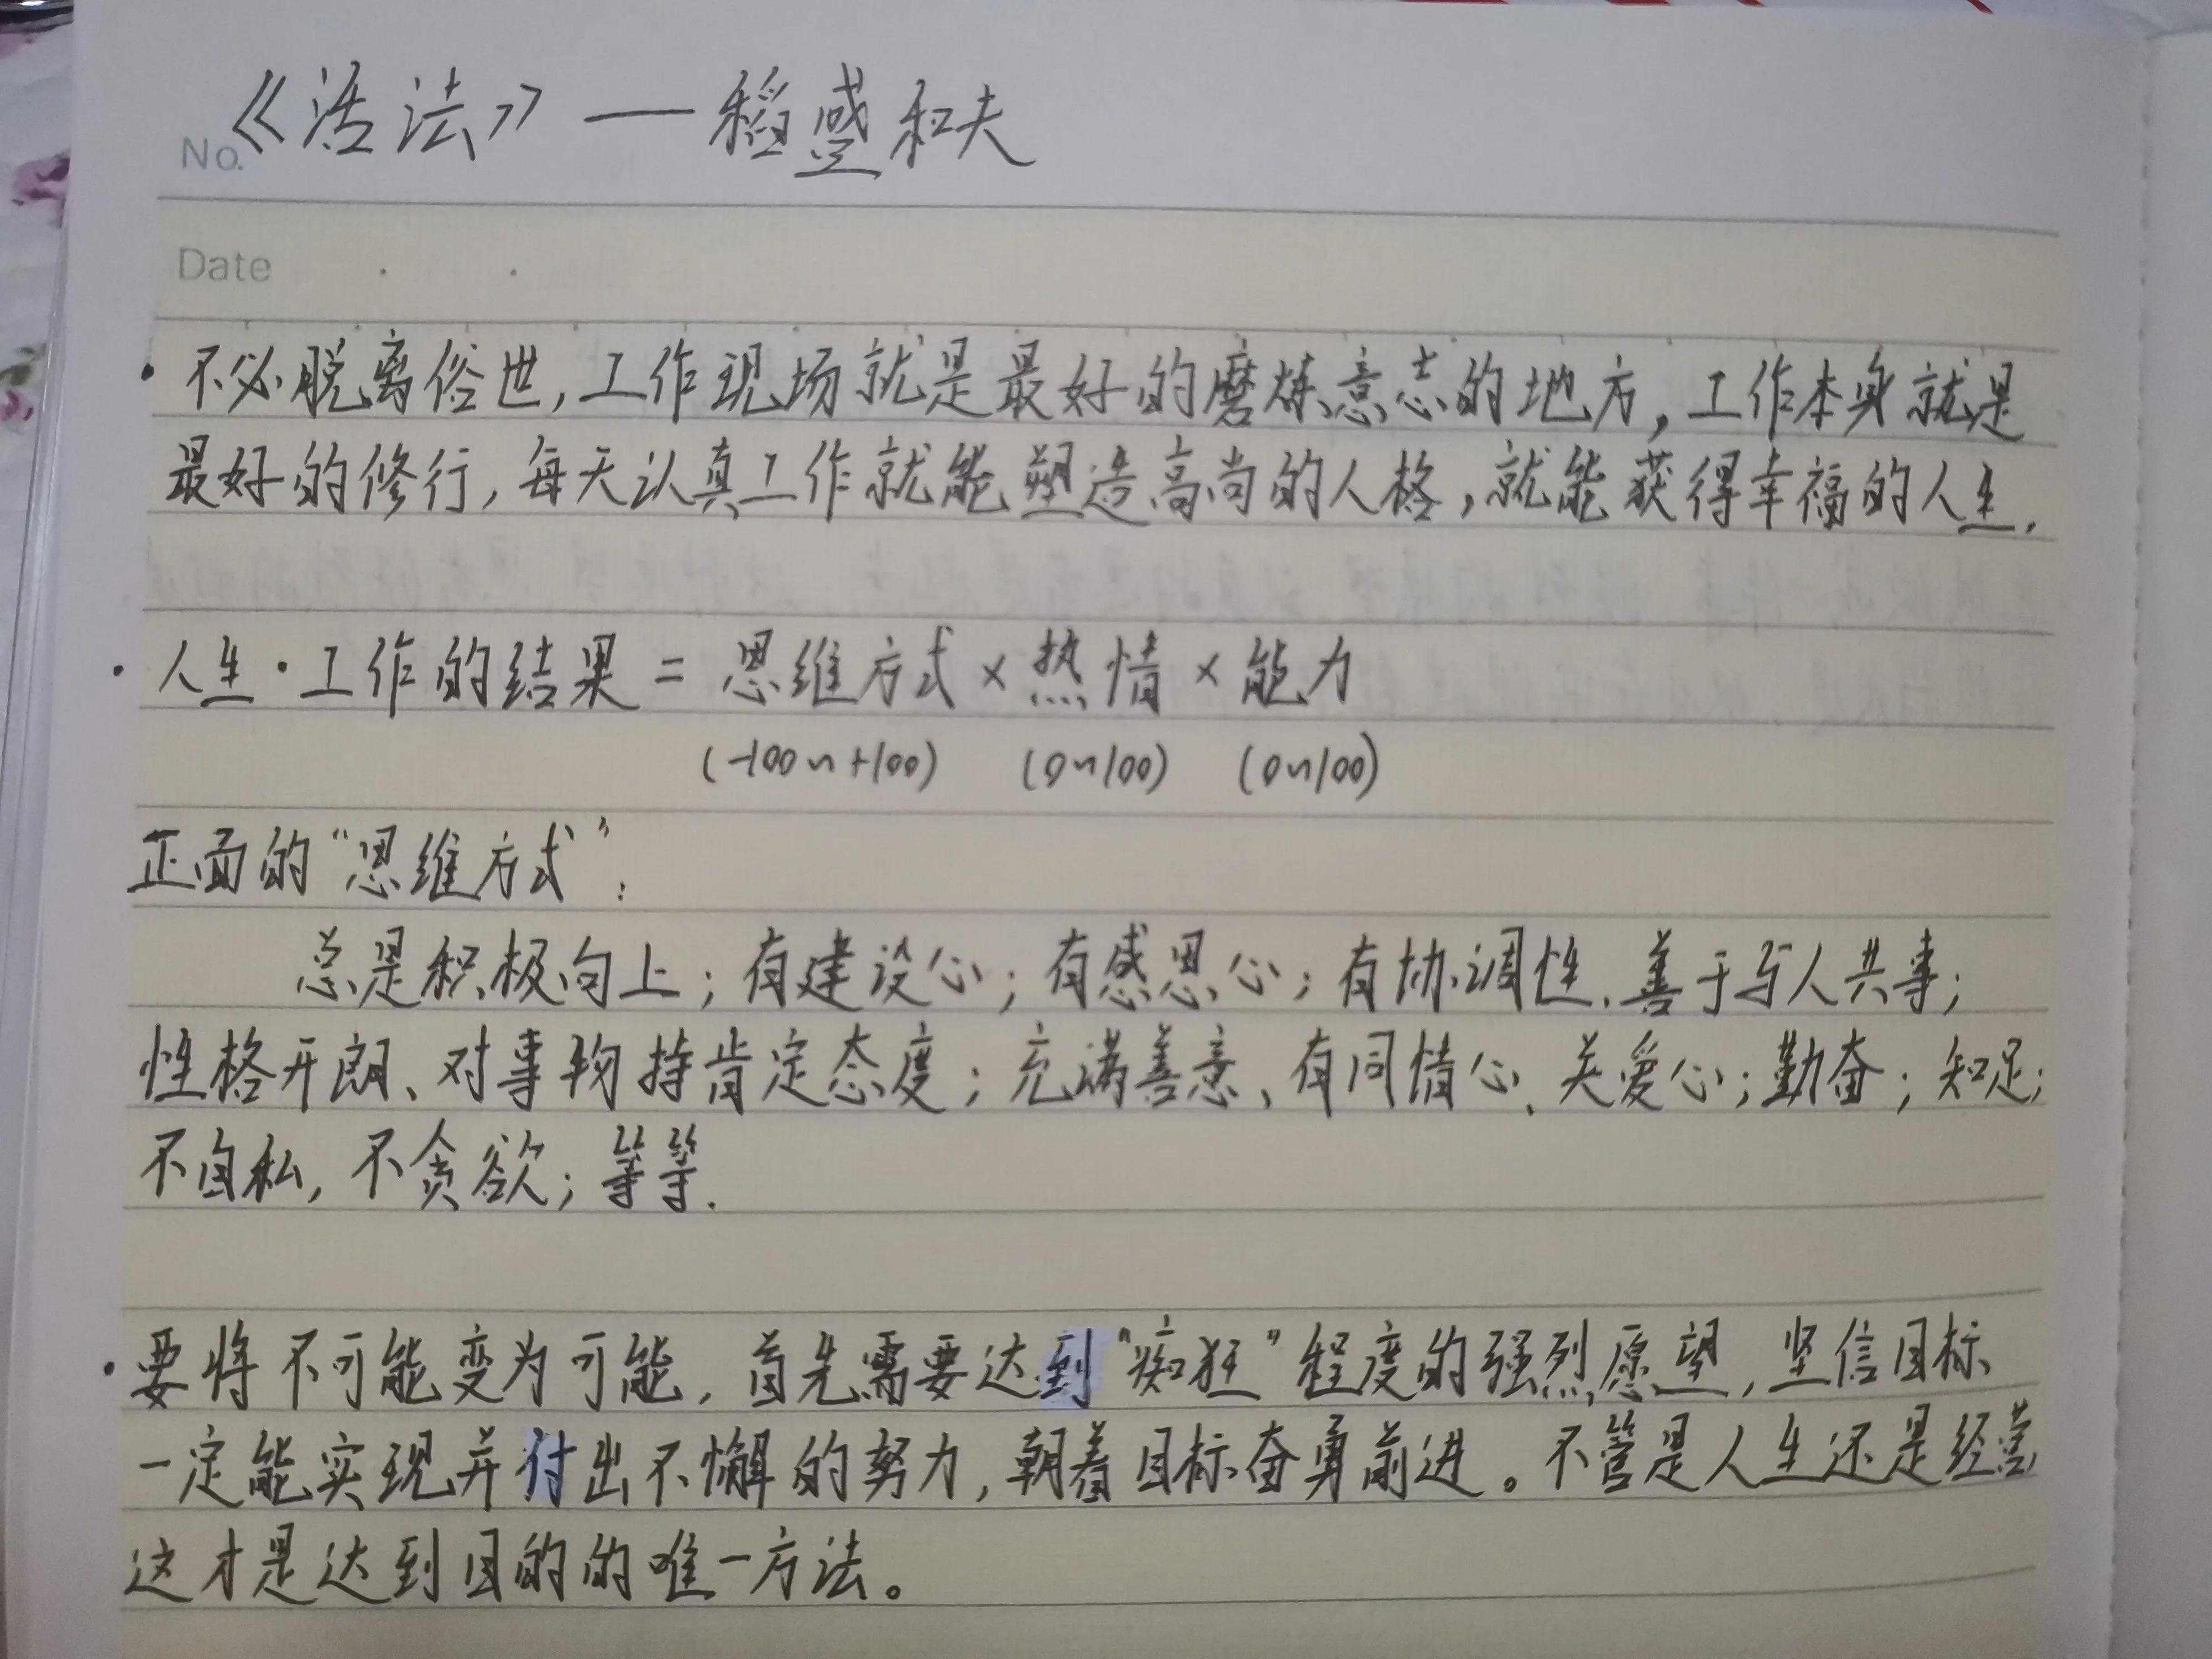 《活法》——稻盛和夫
No.
Date
·不必脱离俗世,工作现场就是最好的磨炼意志的地方,工作本身就是
最好的修行,每天认真工作就能塑造高尚的人格,就能获得幸福的人生.
·人生·工作的结果 = 思维方式 × 热情 × 能力
(-100~+100) (0~100) (0~100)
正面的“思维方式”:
总是积极向上;有建设心;有感恩心;有协调性、善于与人共事;
性格开朗、对事物持肯定态度;充满善意、有同情心、关爱心;勤奋;知足;
不自私,不贪欲;等等.
·要将不可能变为可能,首先需要达到“痴狂”程度的强烈愿望,坚信目标
一定能实现并付出不懈的努力,朝着目标奋勇前进。不管是人生还是经营
这才是达到目的的唯一方法。